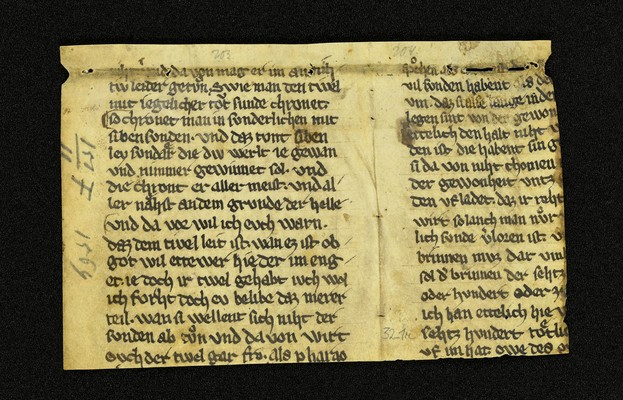 niht vnd da von mag er im
tiv leider getvn. Swie man den tivel
mit iegelicher tot sunde chronet
So chronet man in sonderlichen mit
siben sonden. vnd daz tvnt siben
ley sonder die div werlt ie gewan
vnd nimmer gewinnet sol. vnd
die chront er aller meist. vnd al
ler nahst an dem grvnde der helle
vnd da vor wil ich evch warn.
daz dem tivel leit ist. wan ez ist ob
got wil ettewer hie der im eng
et. ie doch ir tivel gehabt ivch wol
ich forht doch ev belibe daz merer
teil. wan si wellent sich niht der
sonden ab tvn vnd da von wirt
ovch der tivel gar fro. als pharao
vil sonden habent als de
vm. daz si alse lange in der
legen sint von der gewon
ettelich den halt niht
den ist die habent sin g
si da von niht chomen
der gewonheit vntz
den vf ladet. daz ir reht
wirt so lanch man
lich sonde verloren ist. v
brinnen mvz dar vm
sol der brinnen der sehtz
oder hvndert oder
ich han ettelich hie
sehtz hvndert totli
vf im hat owe des
203
204
1527
II
1569
32.1r